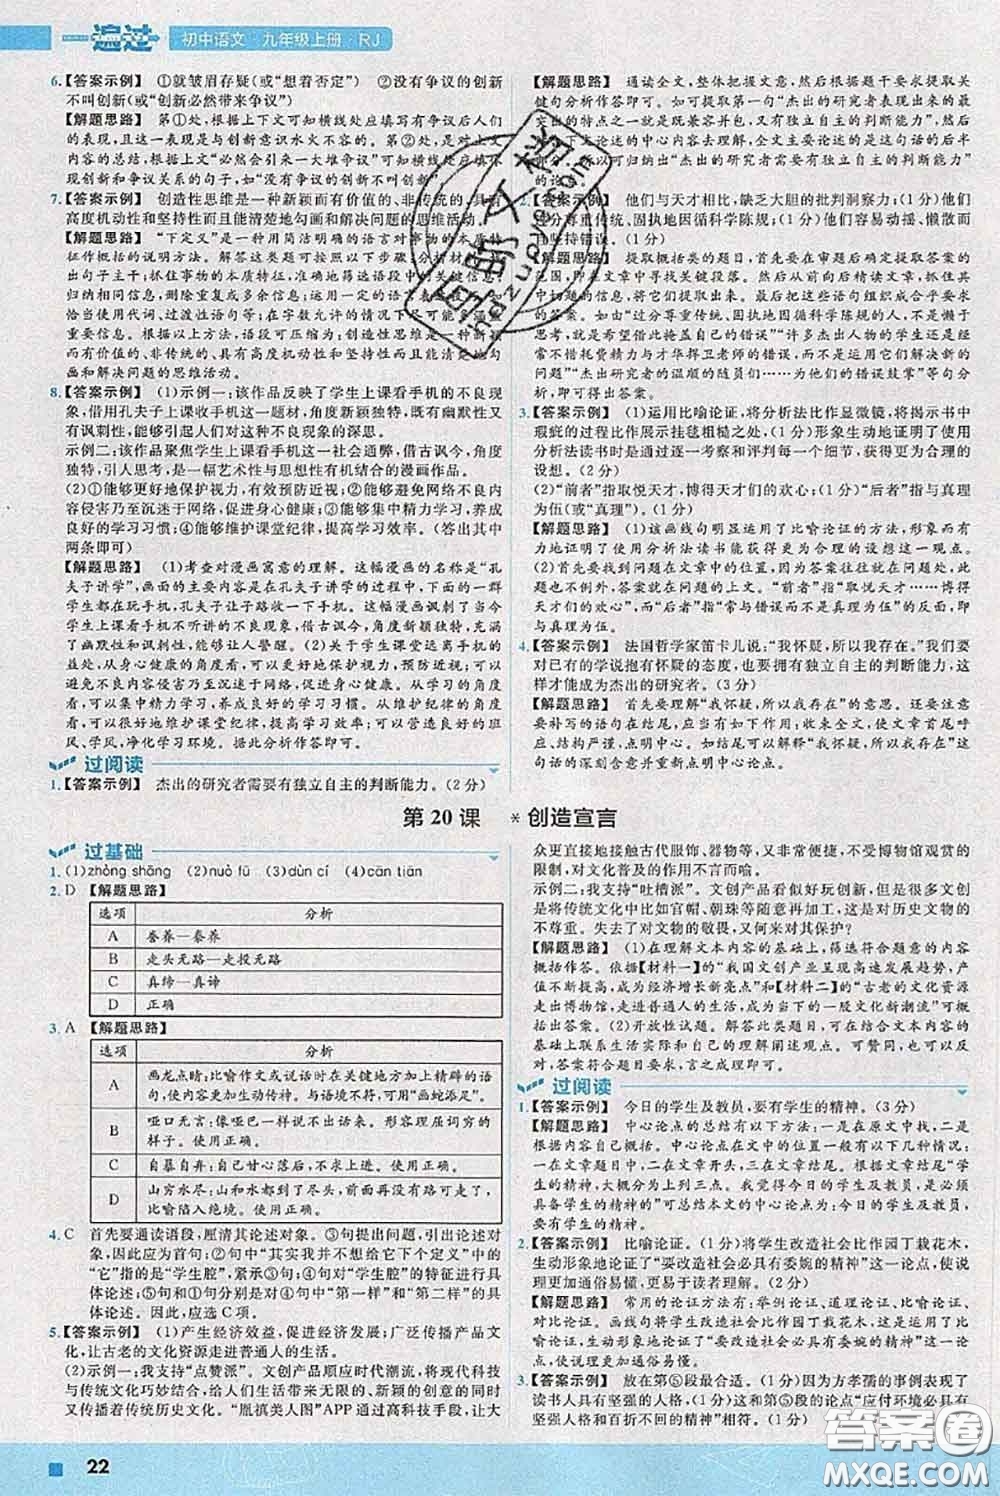 一遍过 初中语文·九年级上册·RJ
6.【答案示例】 ①就皱眉存疑(或“想着否定”) ②没有争议的创新
不叫创新(或“创新必然带来争议”)
【解题思路】 第①处,根据上下文可知横线处应填写有争议后人们
的表现,且这一表现与创新意识水火不容的。第②处,是对上文
内容的总结,根据上文“必然会引来一大堆争议”可知横线处应填不
可创新和争议关系的句子,如“没有争议的创新不叫创新”
7.【答案示例】 创造性思维是一种新颖而有价值的、非传统的,具有
高度机动性和坚持性而且能清楚地勾画和解决问题的思维活动。
【解题思路】 “下定义”是一种用简洁明确的语言对事物的本质特
征作概括的说明方法。解答这类题可按照以下步骤:分析材料,提
出句子主干;抓住事物的本质特征,准确地筛选语段中的关键信息;
归纳信息,删除重复或多余信息;运用长单句,
恰当使用代词、过渡性语句等;在字数允许的情况下尽可能多涵盖
重要信息。根据以上方法,语段可压缩为:创造性思维是一种新颖
而有价值的、非传统的,具有高度机动性和坚持性而且能清楚地勾
画和解决问题的思维活动。
8.【答案示例】 (1)示例一:该作品反映了学生上课看手机的不良现
象,借用孔夫子上课收手机这一题材,角度新颖独特,既有幽默性又
有讽刺性,能够引起人们对这种不良现象的深思。
示例二:该作品聚焦学生上课看手机这一社会通弊,借古讽今,角度
独特,引人思考,是一幅艺术性与思想性有机结合的漫画作品。
(2)①能够更好地保护视力,有效预防近视;②能够避免网络不良内
容侵害乃至沉迷于网络,促进身心健康;③能够集中精力学习,养成
良好的学习习惯;④能够维护课堂纪律,提高学习效率。(答出其中
两条即可)
【解题思路】 (1)考查对漫画寓意的理解。这幅漫画的名称是“孔
夫子讲学”,画面的主要内容是在孔夫子讲学的过程中,下面的一群
学生都在玩手机,孔夫子让子路收一下手机。这幅漫画讽刺了当今
学生上课看手机不听讲的不良现象,角度新颖独特,充满了讽刺与
幽默的味道,能够让人警醒。(2)关于学生课堂远离手机的
益处,从身心健康的角度看,可以更好地保护视力,预防近视;可以
避免不良内容侵害乃至沉迷于网络,促进身心健康。从学习的角度
看,可以集中精力学习,养成良好的学习习惯。从维护纪律的角度
看,可以很好地维护课堂纪律,提高学习效率;可以营造良好的班
风、学风,净化学习环境。据此分析作答即可。
过阅读
1.【答案示例】 杰出的研究者需要有独立自主的判断能力。(2分)
【解题思路】 通读全文,整体把握文意,然后根据题干要求提取关
键句分析作答即可。如可提取第一句“杰出的研究者表现出来的最
突出的特点之一就是既兼容并包,又有独立自主的判断能力”,
下文论述的中心内容去理解,全文主要论述的是这句话的后半部
可以归纳出“杰出的研究者需要有独立自主的判断能力”
的论点。
2.【答案示例】 他们与天才相比,缺乏大胆的批判洞察力;(1分)他们
过分尊重传统、固执地因循科学陈规;(1分)他们容易动摇、懒散而
且坚持错误。(1分)
【解题思路】 提取概括类的题目,首先要在审题后确定提取答案的
范围,即从文章中寻找关键段落。然后向前后精读文章,抓住中心
句或者重要的信息,最后将这些语句组织成合乎要求
的答案。如由“过分尊重传统、固执地因循科学陈规的人,从不动脑
思索,就是希望借此掩盖自己的错误”“许多杰出人物的学生还是经
常不惜花费精力与才华捍卫老师的错误,而不是运用它们解决新的
问题”“杰出研究者的温顺的随员们……为他们的错误鼓掌”等句分析,
即可得出答案。
3.【答案示例】 (1)运用比喻论证,将分析法比作显微镜,将揭示书中
瑕疵的过程比作展示挂毯粗糙之处,(1分)形象生动地证明了使用
分析法读书时是通过逐一考察和评判每一个细节,获得更为合理的
设想。(2分)
(2)“前者”指取悦天才,博得天才们的欢心;(1分)“后者”指与真理
为伍(或“真理”)。(1分)
【解题思路】 (1)该画线句明显运用了比喻论证的方法,形象而有
力地证明了使用分析法读书能获得更为合理的设想这一观点。
(2)首先要找问题在文章中的位置,因为答案往往就在问题处,或
者就在问题的上文。“前者”指“取悦天才……博得
天才们的欢心”,“后者”指“常与错误而不是真理为伍”的反面,即
与真理为伍。
4.【答案示例】 法国哲学家笛卡儿说:“我怀疑,所以我存在。”我们要
对已有的学说抱有怀疑的态度,也要拥有独立自主的判断能力,这
样才能成为杰出的研究者。(3分)
【解题思路】 首先要理解“我怀疑,所以我存在”的意思。还要注意
要补写的语句在结尾,应当有如下作用:收束全文,使文章首尾呼
应、结构严谨,点明中心论点。如结尾可以写出“我怀疑,所以我存在”这
句话的深刻含意并重新点明中心论点。
第 20 课 *创造宣言
过基础
1.(1)zhòng shāng (2)nuò fū (3)dùn cí (4)cān tiān
2. D 【解题思路】
选项 分析
A 誊养—豢养
B 走头无路—走投无路
C 真缔—真谛
D 正确
3. A 【解题思路】
选项 分析
A 画龙点睛:比喻作文或说话时在关键地方加上精辟的语
句,使内容更加生动传神。与语境不符,可用“画蛇添足”。
B 哑口无言:像哑巴一样说不出话来。形容理屈词穷的
样子。使用正确。
C 自暴自弃:自己甘心落后,不求上进。使用正确。
D 山穷水尽:山和水都到了尽头,前面再没有路可走了,比
喻陷入绝境。使用正确。
4. C 首先要通读语段,厘清其论述对象。③句提出问题,引出论述对
象,因此应为首句;②句中“其实我并不想给它下个定义”中的
“它”指的是“学生腔”,紧承③句;④句对“学生腔”的特征进行具
体论述;⑤句和①句分别是对④句中“第一样”和“第二样”的具
体论述。因此,应选C项。
5.【答案示例】 (1)产生经济效益,促进经济发展;广泛传播产品文
化,让古老的文化资源走进普通人的生活。
(2)示例一:我支持“点赞派”。文创产品顺应时代潮流,将现代科技
与传统文化巧妙结合,给人们生活带来无限的、新颖的创意的同时
又传播着传统历史文化。“胤禛美人图”APP通过高科技手段,让大
众更直接地接触古代服饰、器物等,又非常便捷,不受博物馆观赏的
限制,对文化普及的作用不言而喻。
示例二:我支持“吐槽派”。文创产品看似好玩创新,但是很多文创
将传统文化中比如官帽、朝珠等随意再加工,这是对历史文物的
不尊重。失去了对文物的敬畏,又何来对其保护?
【解题思路】 (1)在理解文本内容的基础上,筛选符合题意的内容
概括作答。依据【材料一】的“我国文创产业呈现高速发展
趋势,成为经济增长新亮点”和【材料二】的“古老的文化资源
走出博物馆,走进普通人的生活,成为当下的一股文化新潮流”可概
括出答案。(2)开放性试题。解答此类题目,应在符合文本内容的
基础上联系生活实际和自己的理解阐述观点。可赞同,也可以反
对,答案符合题目要求,言之成理即可。
过阅读
1.【答案示例】 今日的学生及教员,要有学生的精神。(3分)
【解题思路】 中心论点的总结有以下方法:一是在原文中找,二是
根据内容自己概括。中心论点在文中的位置一般有以下几种情况:
一在文章题目中,二在文章开头,三在文章结尾。根据文章结尾“学
生的精神,大概为上列三点。我觉得今日的学生及教员,是必须
具备学生的精神的”可总结本文的中心论点,即今日的学生及教员,
要有学生的精神。
2.【答案示例】 比喻论证。(1分)将学生改造社会比作园丁栽花木,
生动形象地论证了“要改造社会必具有委婉的精神”这一观点,使内容
更加通俗易懂,便于读者理解。(2分)
【解题思路】 常用的论证方法有:举例论证、道理论证、比喻论证、
对比论证。画线句将学生改造社会比作园丁栽花木,运用了比喻论
证,生动形象地论证了“要改造社会必具有委婉的精神”的观点,使
内容更加通俗易懂。
3.【答案示例】 放在第⑤段最合适。(1分)因为方孝孺的事例表现了
读书人具有坚强的人格,(1分)这和第⑤段的论点“应付环境必具有
坚强人格和百折不回的精神”相符。(1分)
22
答案圈
MXQE.COM